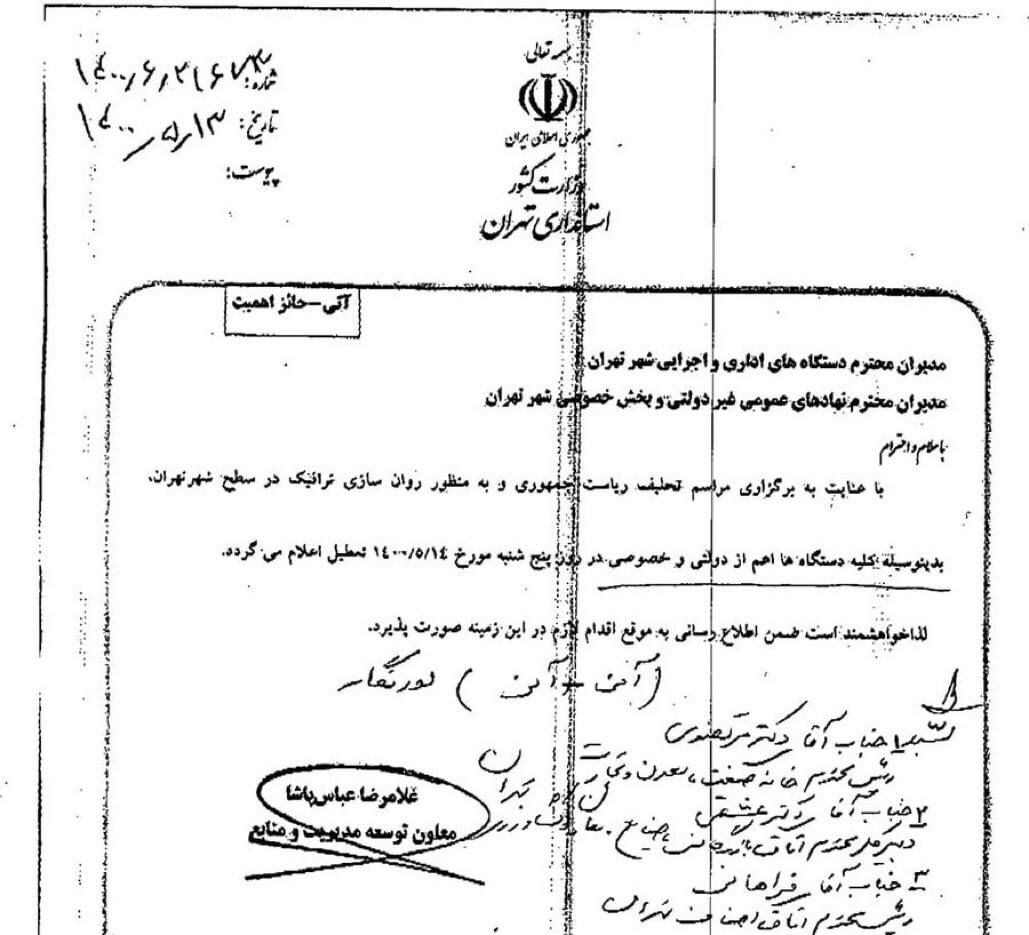 بسمه تعالی
جمهوری اسلامی ایران
وزارت کشور
استانداری تهران
شماره:
تاریخ: ۱۴۰۰/۵/۱۳
پیوست:
آنی-حائز اهمیت
مدیران محترم دستگاه های اداری و اجرایی شهر تهران
مدیران محترم نهادهای عمومی غیر دولتی و بخش خصوصی شهر تهران
باسلام و احترام
با عنایت به برگزاری مراسم تحلیف ریاست جمهوری و به منظور روان سازی ترافیک در سطح شهرتهران،
بدینوسیله کلیه دستگاه ها اعم از دولتی و خصوصی در روز پنج شنبه مورخ ١٤٠٠/٥/١٤ تعطیل اعلام می گردد.
لذاخواهشمند است ضمن اطلاع رسانی به موقع اقدام لازم در این زمینه صورت پذیرد.
(آنی - آنی) دورنگار
۱ جناب آقای دکتر مرتضوی
رئیس محترم خانه صنعت، معدن و تجارت
۲ جناب آقای دکتر
دبیرکل محترم اتاق بازرگانی، صنایع، معادن و کشاورزی تهران
۳ جناب آقای فراهانی
رئیس محترم اتاق اصناف تهران
غلامرضا عباس‌پاشا
معاون توسعه مدیریت و منابع